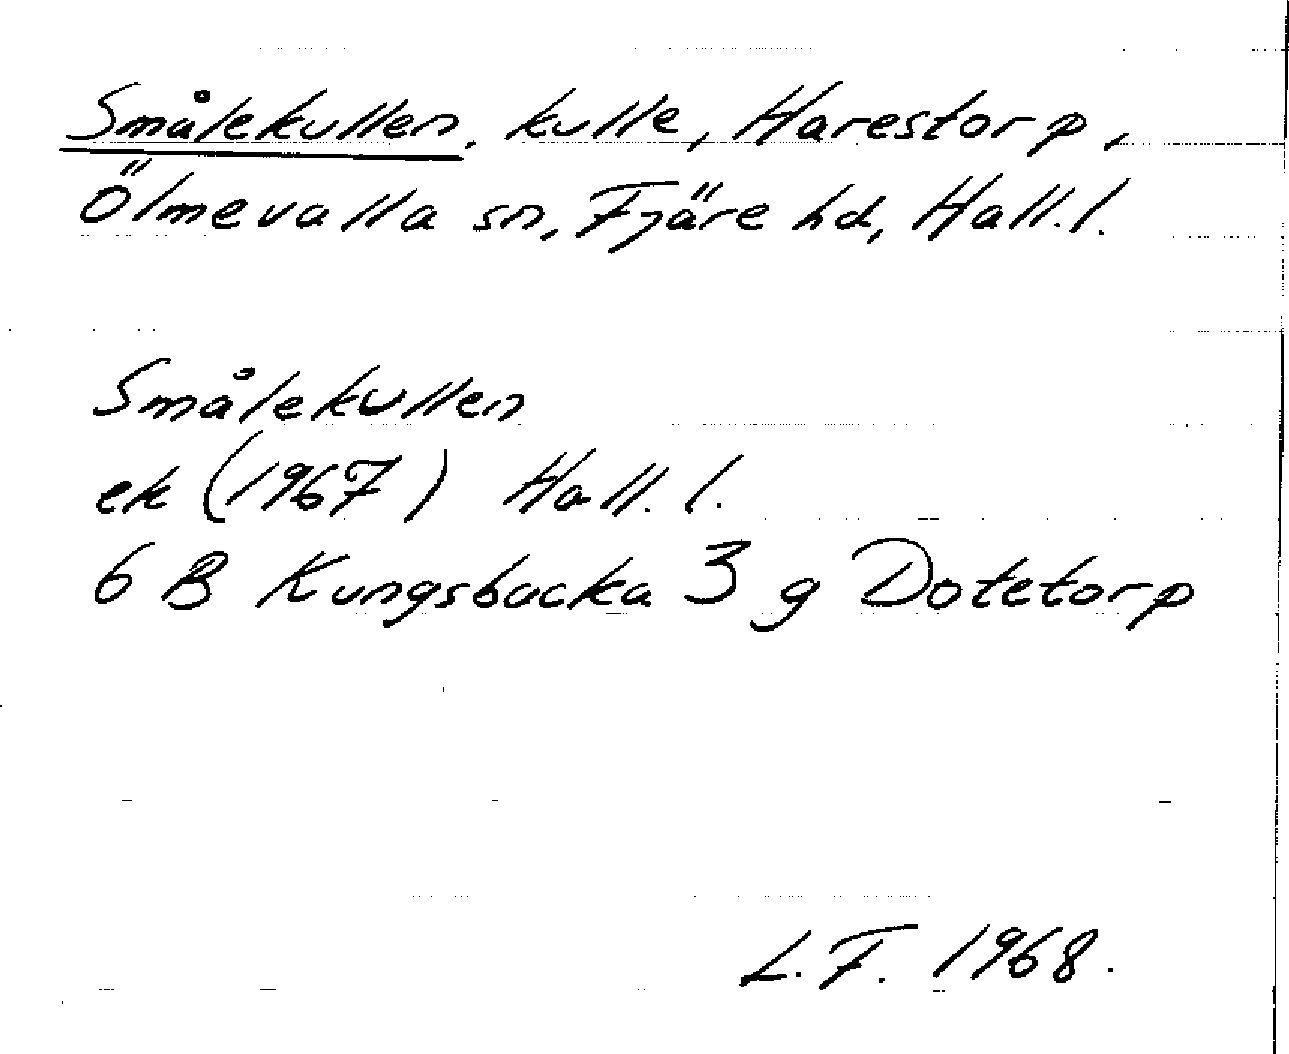 Smålekullen, kulle, Harestorp,
Ölmevalla sn, Fjäre hd, Hall.l.
Smålekullen
ek (1967) Hall.l.
6 B Kungsbacka 3 g Dotetorp
L.F. 1968.